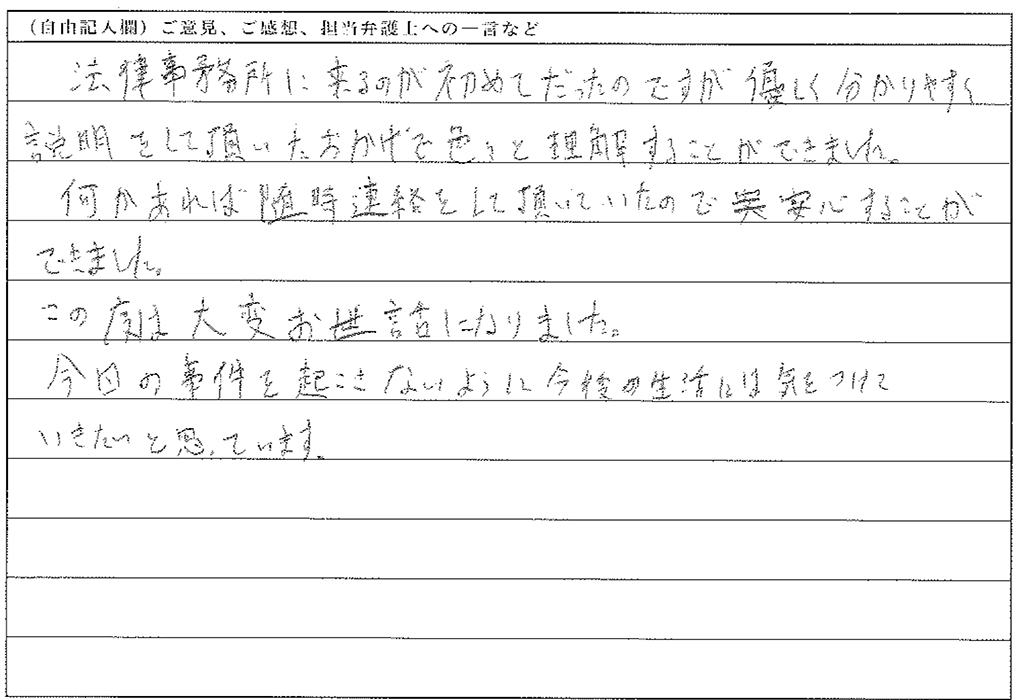 （自由記入欄）ご意見、ご感想、担当弁護士への一言など
法律事務所に来るのが初めてだったのですが優しく分かりやすく
説明をして頂いたおかげで色々と理解することができました。
何かあれば随時連絡をして頂いていたので安心することが
できました。
この度は大変お世話になりました。
今回の事件を起こさないように今後の生活には気をつけて
いきたいと思っています。